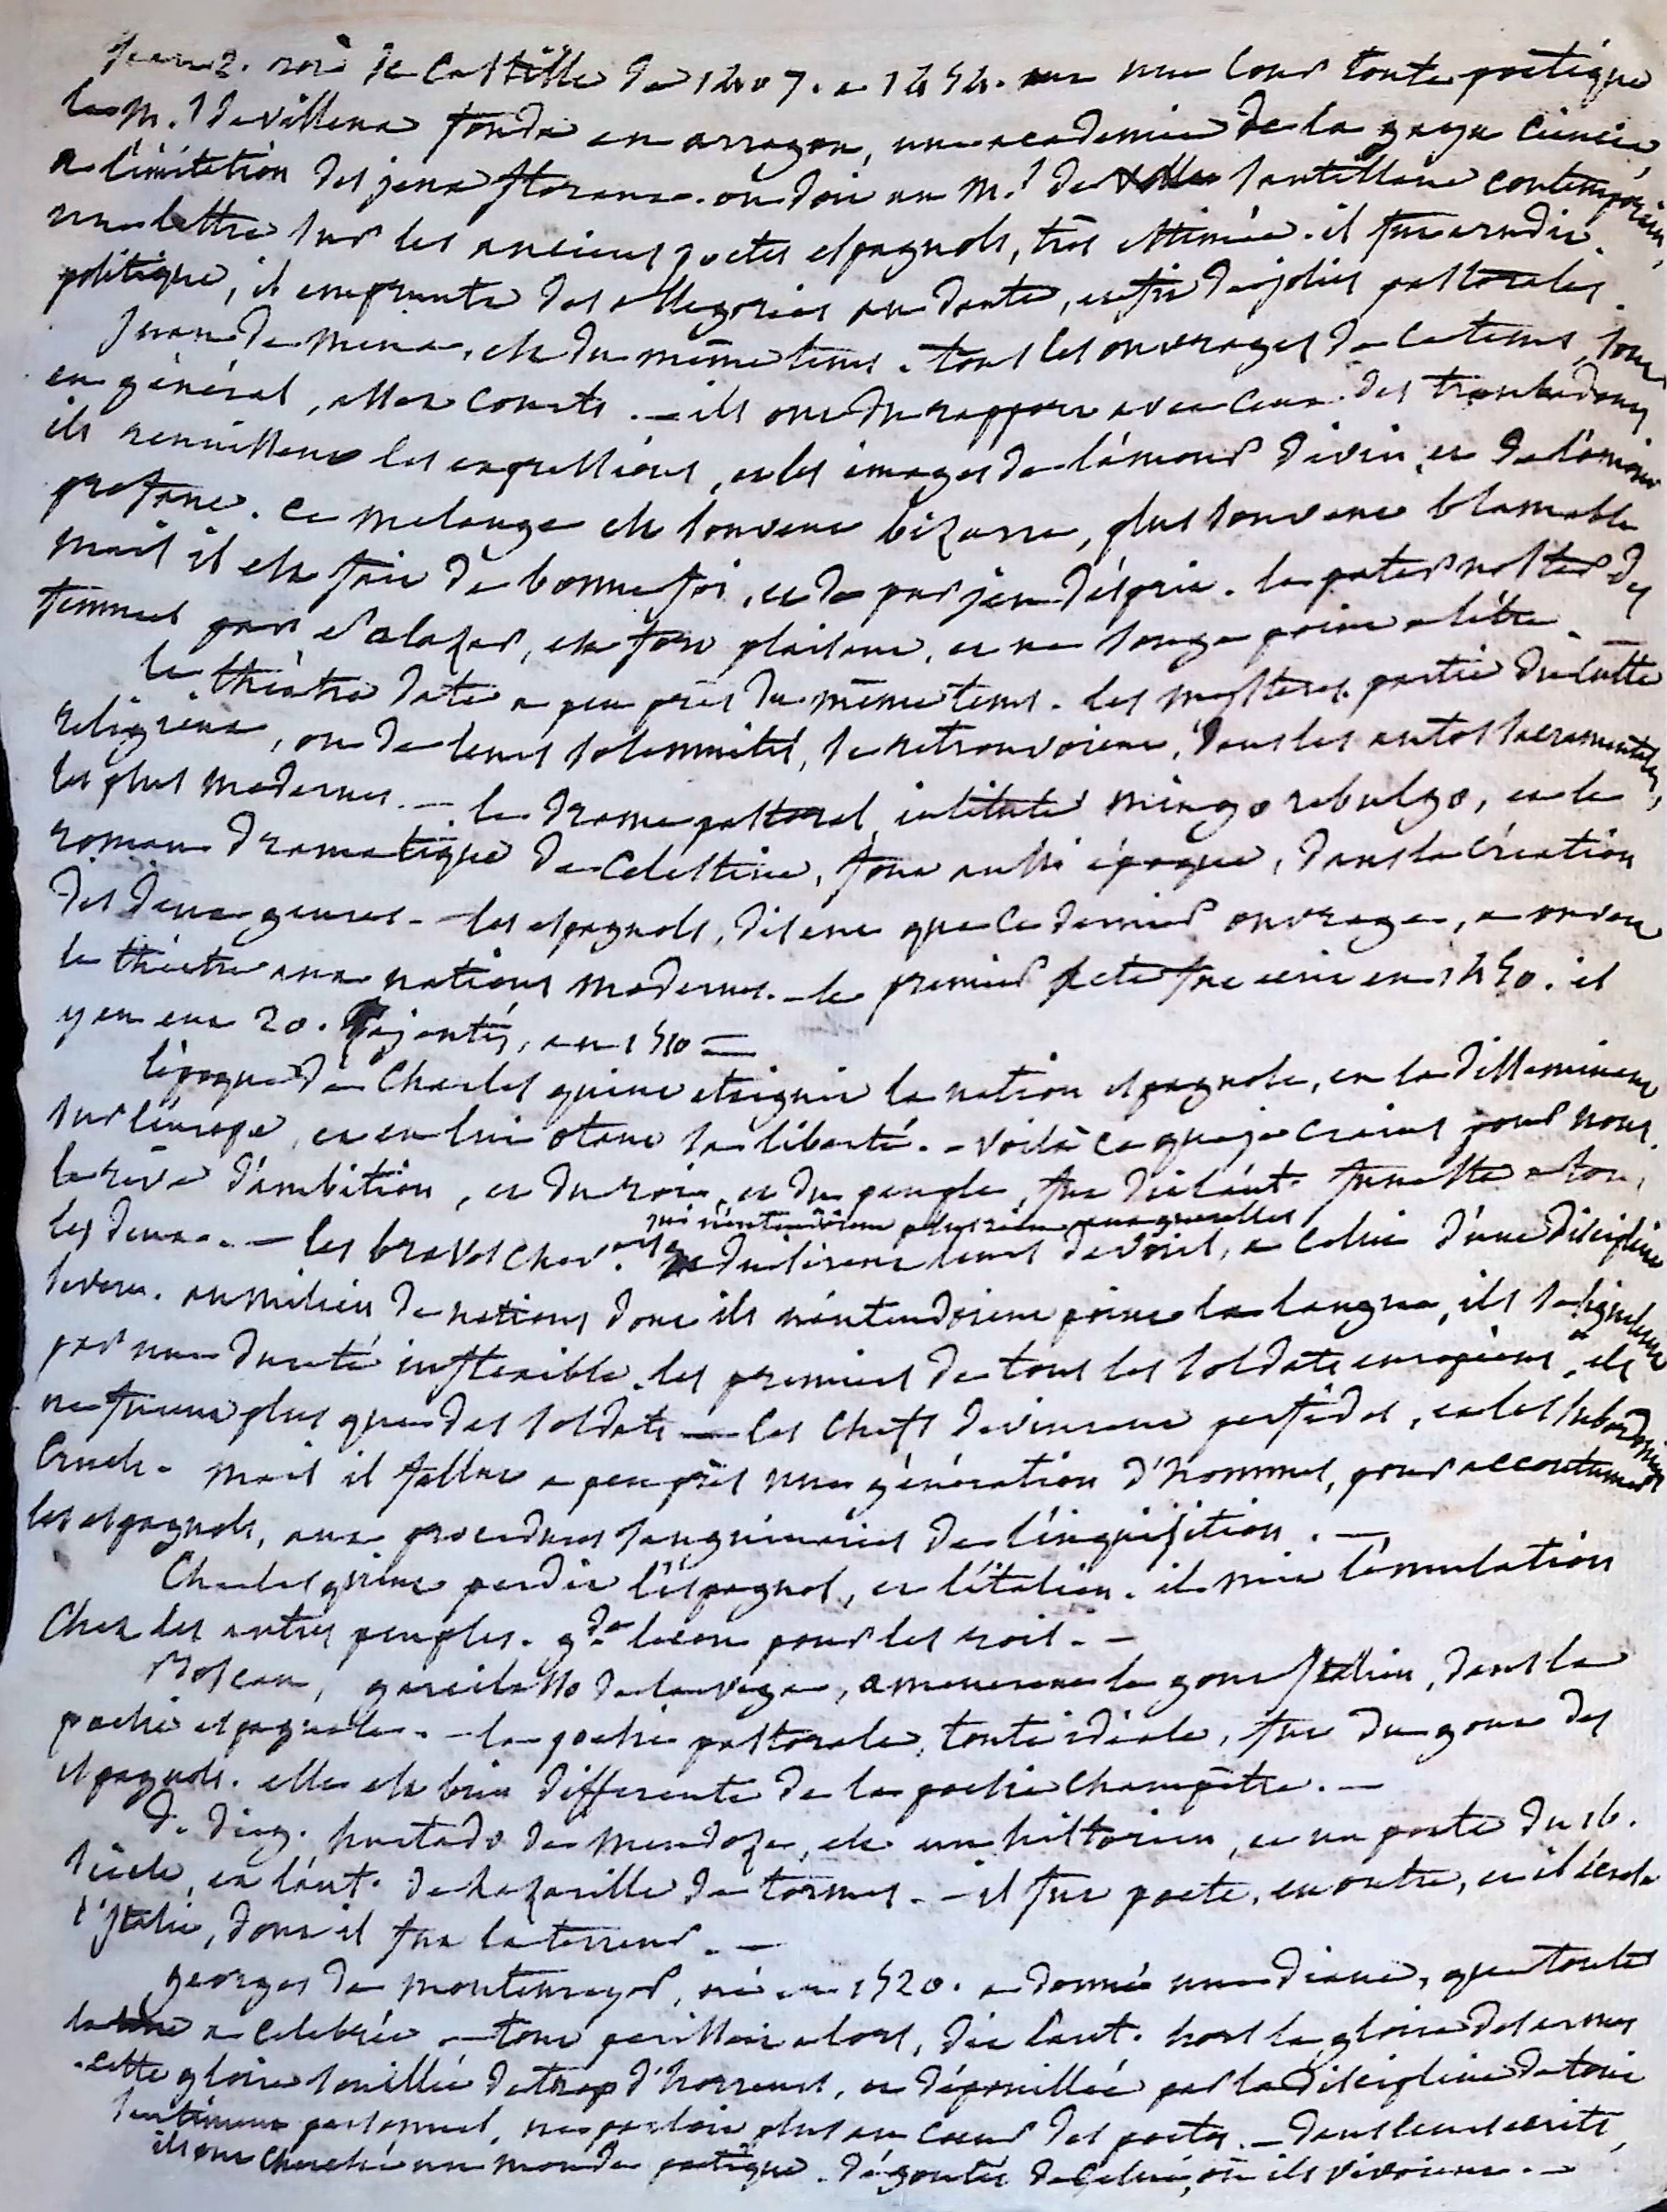 Jean 2. roi de Castille de 1407. a 1454. eut une cour toute poëtique
le M.is de villena fonda en arragon, une academie de la gaya ciencia
a l'imitation des jeux floraux. on doit au M.is de Santillane contemporain,
une lettre sur les anciens poetes espagnols, très estimée. il fut erudit.
politique, il emprunta des allegories au dante, et fit de jolies pastorales.
Juan de mena, est du même tems. tous les ouvrages de ce tems, sont
en général, assez courts. — ils ont du rapport avec ceux des troubadours
ils reunissent les expressions, et les images de l'amour divin, et de l'amour
profane. ce melange est souvent bizarre, plus souvent blamable
mais il est fait de bonne foi, et de pur jeu d'esprit. le pater noster des
femmes par Salazar, est fort plaisant, et ne songe point a l'être. —
le théatre date a peu près du même tems. les mysteres partie du culte
religieux, ou de leurs solemnités, se retrouvoient, dans les autos sacramentales,
les plus modernes. — le drame pastoral, intitulé mingo rebulgo, et le
roman dramatique de Celestine, font aussi époque, dans la création
des deux genres. — les espagnols, disent que ce dernier ouvrage, a ouvert
le théatre aux nations modernes. — le premier acte fut ecrit en 1450. il
y en eut 20. ajoutés, en 1510 —
l'époque de Charles quint etaignit la nation espagnole, en la disseminant
sur l'europe, et en lui otant sa liberté. — voilà ce que je crains pour nous.
le rêve d'ambition, et du roi, et du peuple, fut dit l'aut. funeste a tous
les deux. — les braves chev.
qui n'entendoient plus rien aux querelles
reduisirent leurs devoirs, a celui d'une discipline
severe. au milieu de nations dont ils n'entendoient point la langue, ils se signalerent
par une dureté inflexible. les premiers de tous les soldats européens, ils
ne furent plus que des soldats — les chefs devinrent perfides, et les subordonnés
cruels. mais il fallut a peu près une génération d'hommes, pour accoutumer
les espagnols, aux procedures sanguinaires de l'inquisition. —
Charles quint perdit l'espagnol, et l'italien. il mit l'émulation
chez les autres peuples. gde lecon pour les rois. —
Boscan, garcilasso de la vega, amenerent le gout Italien, dans la
poesie espagnole. — la poesie pastorale, toute idéale, fut du gout des
espagnols. elle est bien differente de la poesie champêtre. —
D. Dieg. hurtado de Mendoza, est un historien, et un poete du 16.
siecle, et l'aut. de Lazarille de tormes. — il fut poete, en outre, et il
l'Italie, dont il fut la terreur. —
georges de montemayor, né en 1520. a donné une diane, que toute
a celebrée — tout perissoit alors, dit l'aut. hors la gloire des armes
cette gloire souillée de trop d'horreurs, et dépouillée par la discipline de tout
sentiment personnel, ne parloit plus au coeur des poetes. — dans leurs ecrits,
ils ont cherché un monde poëtique. dégoutés de celui, où ils vivoient. —